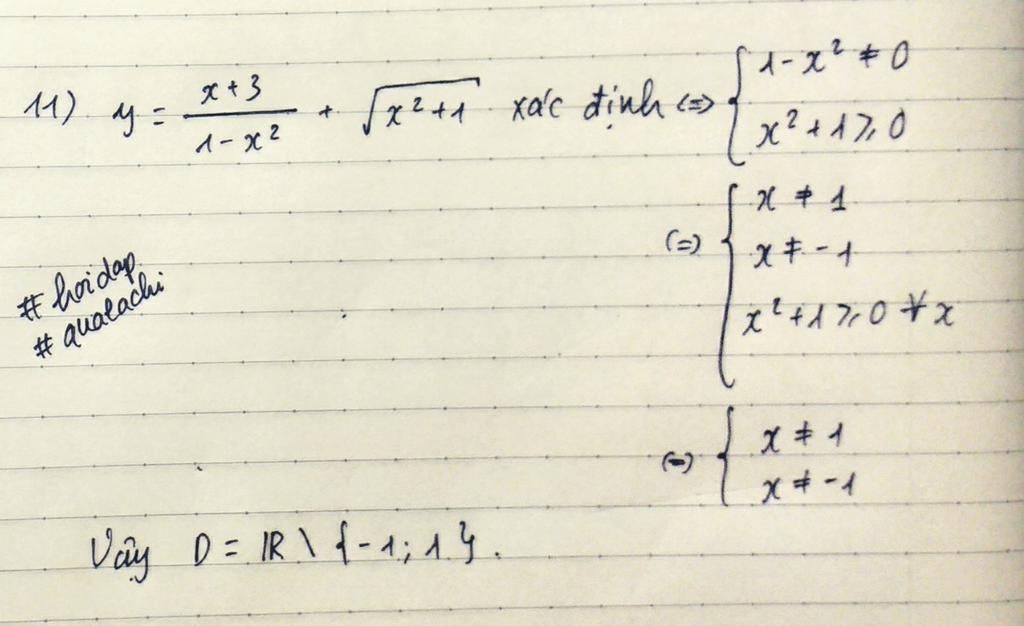 11) y = x+3 / 1-x² + √x²+1 xác định (=) { 1-x² ≠ 0
x²+1 ≥ 0
(=) { x ≠ 1
x ≠ -1
x²+1 ≥ 0 ∀x
# hoidap
# quatachi
(=) { x ≠ 1
x ≠ -1
Vậy D = ℝ \ {-1; 1}.